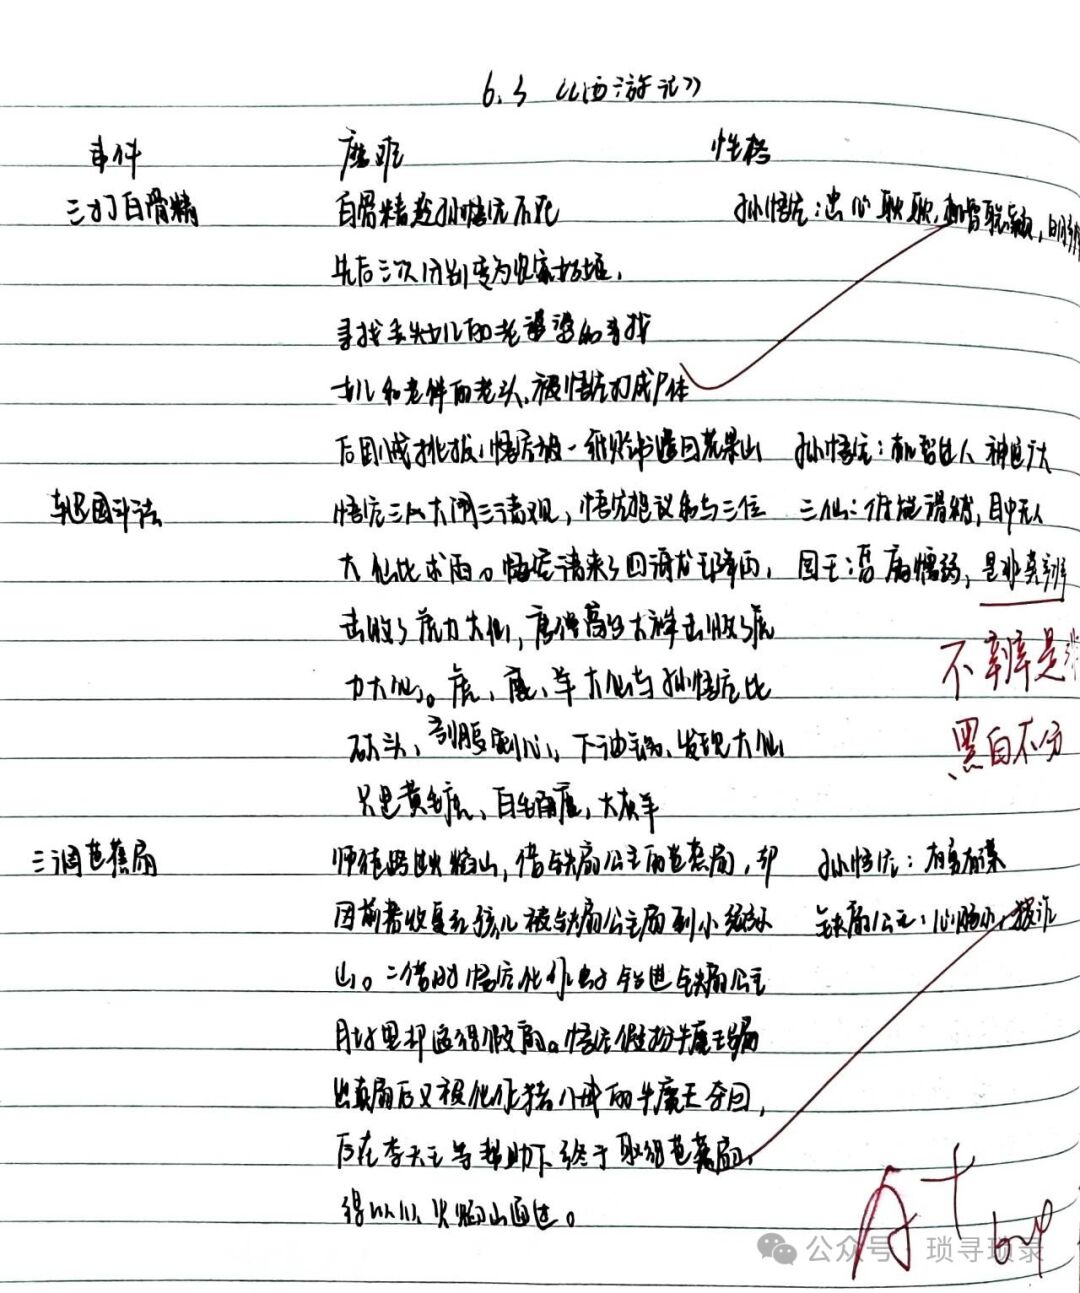 6.3 《西游记》
事件 磨难 性格
三打白骨精 白骨精趁孙悟空不在 孙悟空：忠心耿耿，机智聪颖，明辨
先后三次分别变为农家姑娘，
寻找丢失女儿的老婆婆和寻找
女儿和老伴的老头，被悟空打成尸体
后因八戒挑拨，悟空被一纸贬书遣回花果山 孙悟空：机智过人 神通广大
车迟国斗法 悟空三人大闹三清观，悟空提议和与三位 三仙：目中无人
大仙比求雨。悟空请来了四海龙王降雨， 国王：昏庸懦弱，是非莫辨
击败了虎力大仙，唐僧高台大禅击败了虎 不辨是非
力大仙。虎、鹿、羊大仙与孙悟空比
砍头、剖腹剜心、下油锅、发现大仙 黑白不分
只是黄毛虎、白毛角鹿，大灰羊
三调芭蕉扇 师徒路过火焰山，借铁扇公主的芭蕉扇，却 孙悟空：有勇有谋
因前者收复红孩儿被铁扇公主扇到小须弥 铁扇公主：心胸小，狡诈
山。二借时悟空化作虫子钻进铁扇公主
肚里却返得假扇。悟空假扮牛魔王骗
出真扇后又被化作猪八戒的牛魔王夺回，
后在李天王等帮助下终于取得芭蕉扇，
得以从火焰山通过。
A+
公众号·琐寻琐录